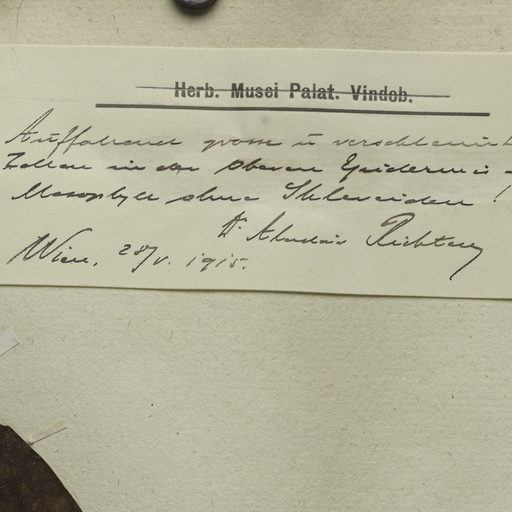 Herb. Musei Palat. Vindob.
Auffallend grosse u verschleimt
Zellen in der oberen Epidermis -
Mesophyll ohne Sklereiden !
Dr. Aladár Richter
Wien, 28/V. 1915.